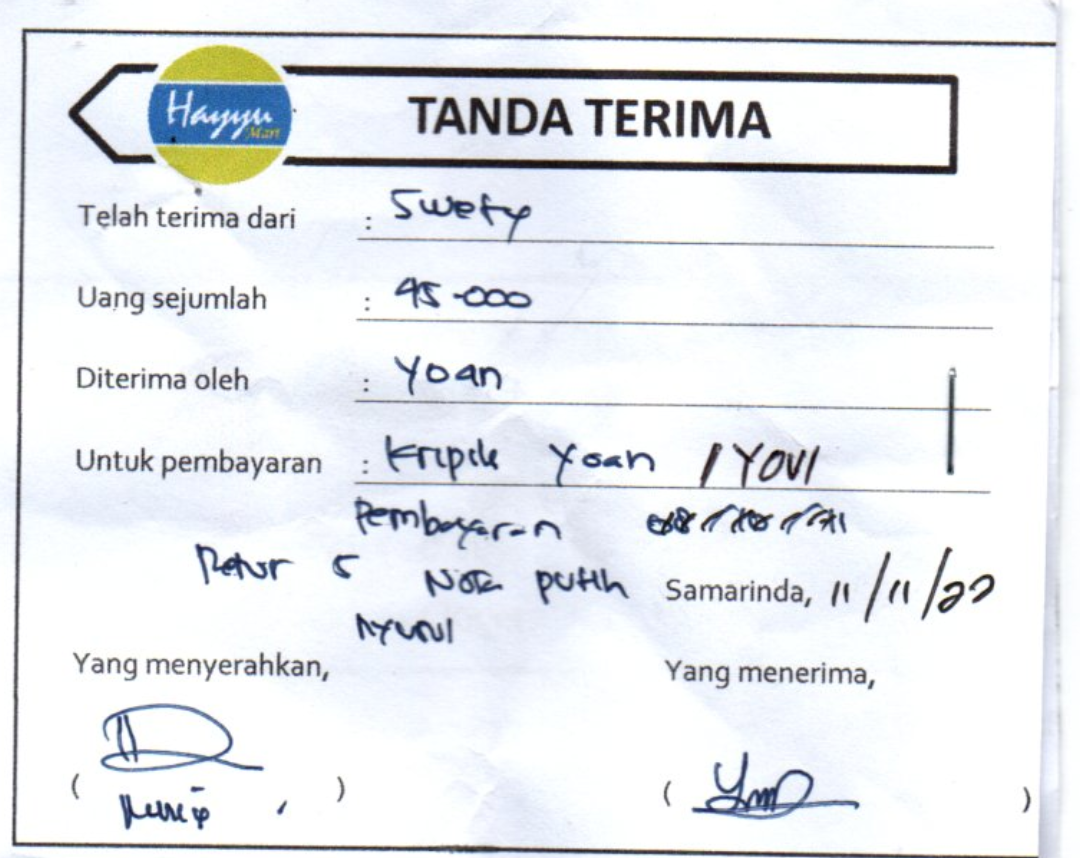 Hayyu
Mart
TANDA TERIMA
Telah terima dari : Swety
Uang sejumlah : 45.000
Diterima oleh : Yoan
Untuk pembayaran : Kripik Yoan / YOVI
Pembayaran
Retur 5 Nota putih
nyusul
Samarinda, 11/11/22
Yang menyerahkan, Yang menerima,
( ) ( )